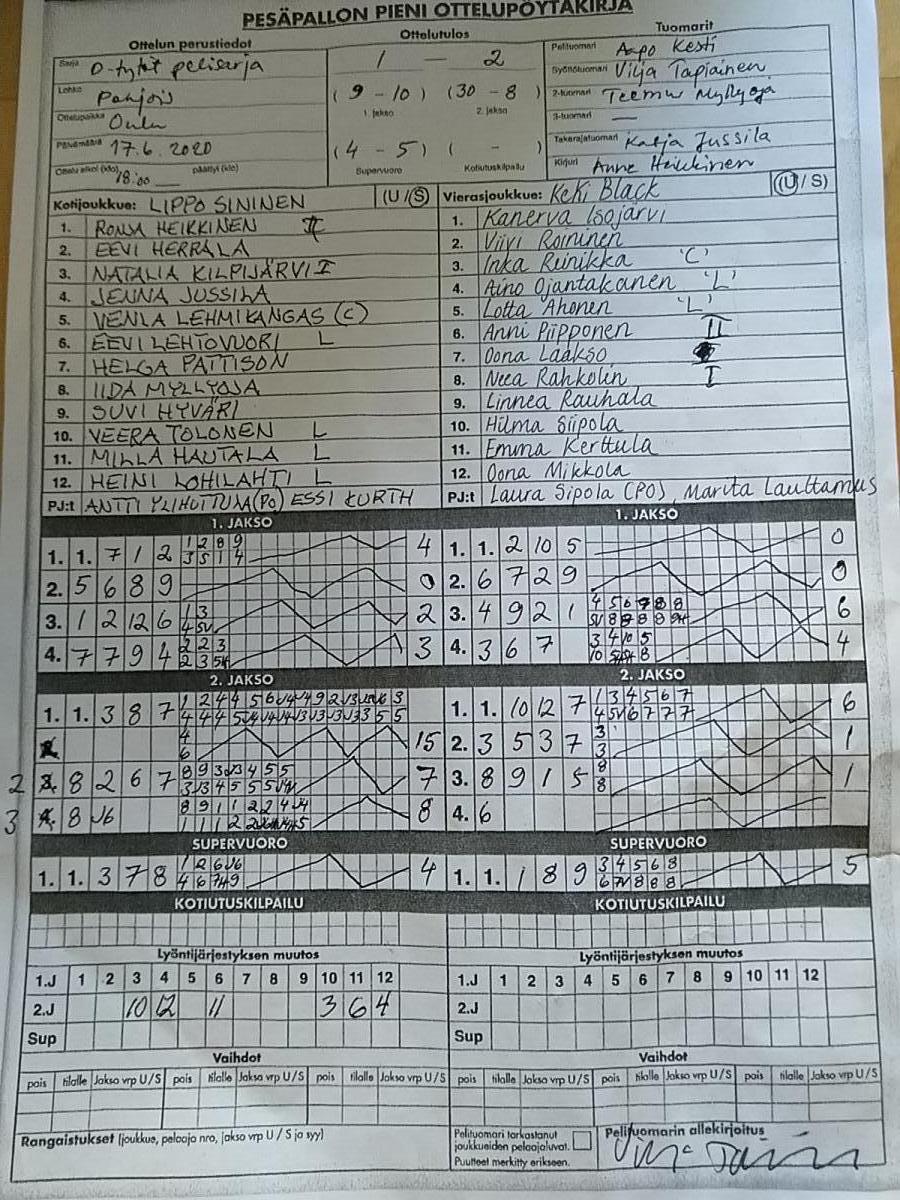 PESÄPALLON PIENI OTTELUPÖYTÄKIRJA
Ottelun perustiedot Ottelutulos Tuomarit
Sarja D-tytöt pelisarja 1 — 2 Pelituomari Aapo Kesti
Lohko Pohjois (9 - 10) (30 - 8) Syöttötuomari Vilja Tapiainen
1. jakso 2. jakso 2-tuomari Teemu Myllyoja
Ottelupaikka Oulu 3-tuomari —
Päivämäärä 17.6.2020 (4 - 5) ( - ) Takarajatuomari Katja Jussila
Ottelu alkoi (klo) 18:00 päättyi (klo) Supervuoro Kotiutuskilpailu Kirjuri Anne Heikkinen
Kotijoukkue: LIPPO SININEN (U/S) Vierasjoukkue: KeKi Black (U/S)
1. RONJA HEIKKINEN II 1. Kanerva Isojärvi
2. EEVI HERRALA 2. Viivi Roininen
3. NATALIA KILPIJÄRVI I 3. Inka Reinikka 'C'
4. JENNA JUSSILA 4. Aino Ojantakanen 'L'
5. VENLA LEHMIKANGAS (C) 5. Lotta Ahonen 'L'
6. EEVI LEHTOVUORI L 6. Anni Piipponen II
7. HELGA PATTISON 7. Oona Laakso
8. IIDA MYLLYOJA 8. Neea Rahkolin I
9. SUVI HYVÄRI 9. Linnea Rauhala
10. VEERA TOLONEN L 10. Hilma Siipola
11. MILLA HAUTALA L 11. Emma Kerttula
12. HEINI LOHILAHTI L 12. Oona Mikkola
PJ:t ANTTI YLIHUTTULA (PO) ESSI KURTH PJ:t Laura Sipola (PO), Marita Lauttamus
1. JAKSO 1. JAKSO
1. 1. 7 1 2 1 2 8 9 4 1. 1. 2 10 5 0
3 5 1 4
2. 5 6 8 9 0 2. 6 7 2 9 0
3. 1 2 12 6 1 3 2 3. 4 9 2 1 6
4 5V
4. 7 7 9 4 2 2 3 3 4. 3 6 7 3 4 10 5 4
2. JAKSO 2. JAKSO
1. 1. 3 8 7 1. 1. 10 12 7 1 3 4 5 6 7 6
4 5V 6 7 7 7
4 15 2. 3 5 3 7 3 1
6 3
2 8 2 6 7 7 3. 8 9 1 5 8 1
8
3 8 8 4. 6
SUPERVUORO SUPERVUORO
1. 1. 3 7 8 4 1. 1. 1 8 9 3 4 5 6 8 5
KOTIUTUSKILPAILU KOTIUTUSKILPAILU
Lyöntijärjestyksen muutos Lyöntijärjestyksen muutos
1.J 1 2 3 4 5 6 7 8 9 10 11 12 1.J 1 2 3 4 5 6 7 8 9 10 11 12
2.J 10 12 11 3 6 4 2.J
Sup Sup
Vaihdot Vaihdot
pois tilalle Jakso vrp U/S pois tilalle Jakso vrp U/S pois tilalle Jakso vrp U/S pois tilalle Jakso vrp U/S pois tilalle Jakso vrp U/S pois tilalle Jakso vrp U/S
Rangaistukset (joukkue, pelaaja nro, jakso vrp U / S ja syy) Pelituomari tarkastanut joukkueiden pelaajaluvat. Pelituomarin allekirjoitus
Puutteet merkitty erikseen.